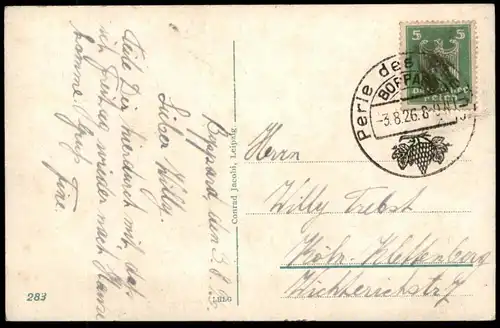 Boppard, den 3.8.26.
Lieber Willy.
Teile Dir hierdurch mit, daß
ich Freitag wieder nach Hause
komme. Gruß
Tine.
Conrad Jacobi, Leipzig
283
5 5
Perle des
BOPPA
-3.8.26.8-9
Herrn
Willy Trebst
Köln-Klettenberg
Wichterichstr. 7